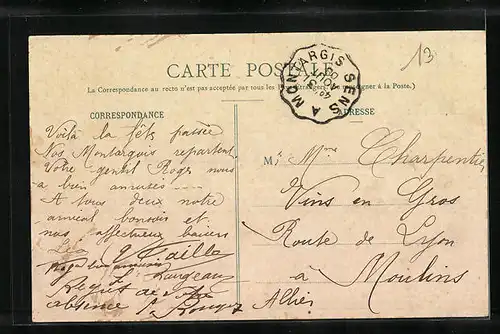 13
CARTE POSTALE
(La Correspondance au recto n'est pas acceptée par tous les pays étrangers. Se renseigner à la Poste.)
SENS A MONTARGIS
31
AOUT
09
CORRESPONDANCE
Voilà la fête passée
Nos Montargois repartent
Votre gentil Roger nous
a bien amusés ----
A tous deux notre
amical bonsoir et
nos affectueux baisers
ADRESSE
M. Mme Charpentier
Vins en Gros
Route de Lyon
à Moulins
Allier
Regret de
absence